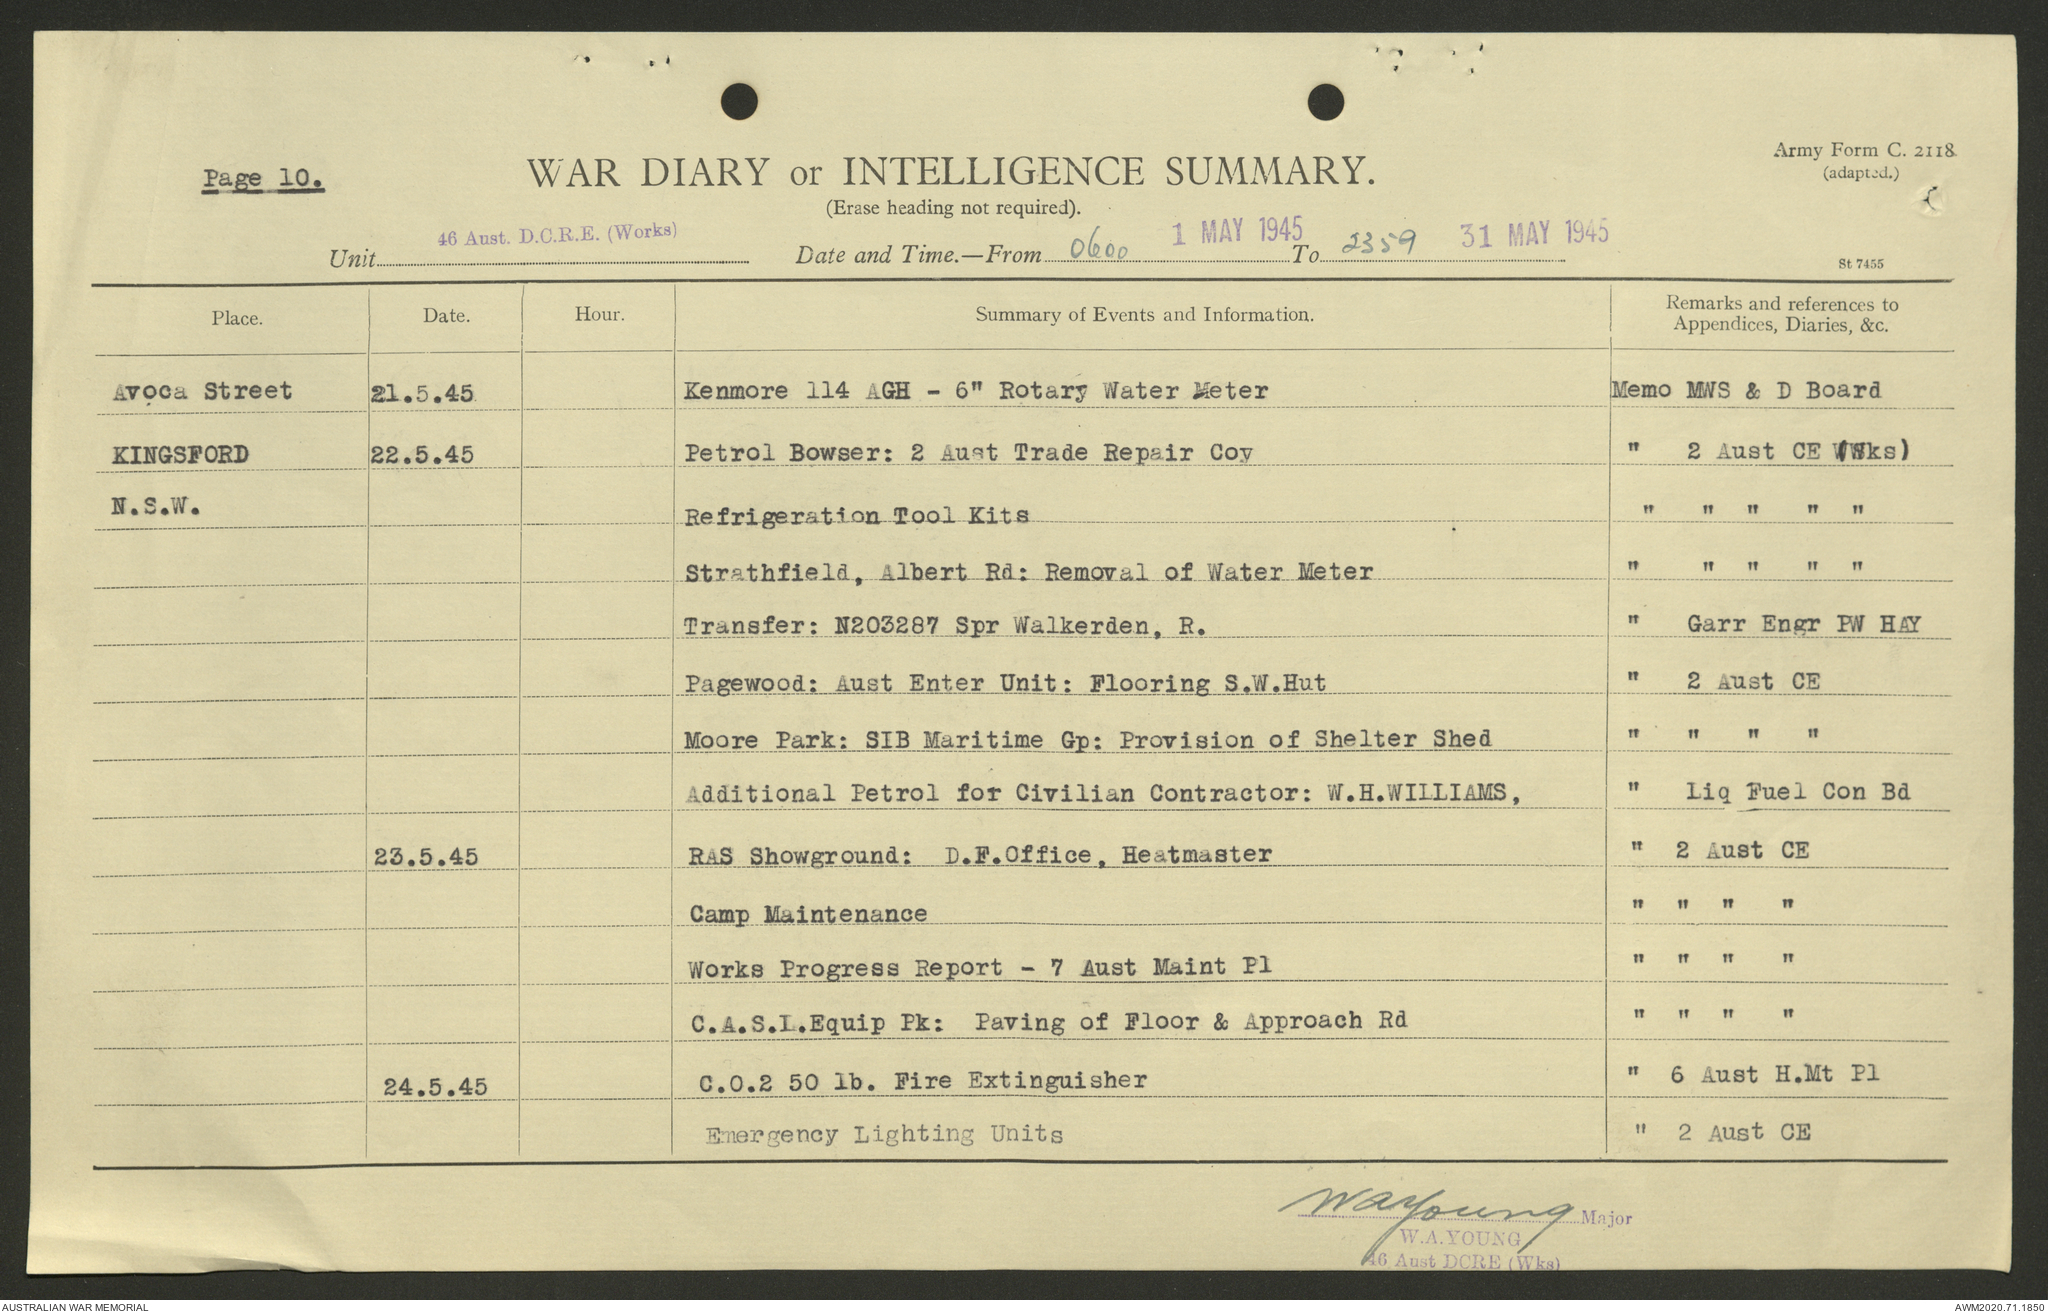 Page 10.
WAR DIARY or INTELLIGENCE SUMMARY.
(Erase heading not required).
Army Form C. 2118
(adapted.)
Unit 46 Aust. D.C.R.E. (Works) Date and Time.—From 0600 1 MAY 1945 To 2359 31 MAY 1945
St 7455
Place. Date. Hour. Summary of Events and Information. Remarks and references to
Appendices, Diaries, &c.
Avoca Street 21.5.45 Kenmore 114 AGH - 6" Rotary Water Meter Memo MWS & D Board
KINGSFORD 22.5.45 Petrol Bowser: 2 Aust Trade Repair Coy " 2 Aust CE (Wks)
N.S.W. Refrigeration Tool Kits " " " " "
Strathfield, Albert Rd: Removal of Water Meter " " " " "
Transfer: N203287 Spr Walkerden, R. " Garr Engr PW HAY
Pagewood: Aust Enter Unit: Flooring S.W.Hut " 2 Aust CE
Moore Park: SIB Maritime Gp: Provision of Shelter Shed " " " "
Additional Petrol for Civilian Contractor: W.H.WILLIAMS, " Liq Fuel Con Bd
23.5.45 RAS Showground: D.F.Office, Heatmaster " 2 Aust CE
Camp Maintenance " " " "
Works Progress Report - 7 Aust Maint Pl " " " "
C.A.S.L.Equip Pk: Paving of Floor & Approach Rd " " " "
24.5.45 C.O.2 50 lb. Fire Extinguisher " 6 Aust H.Mt Pl
Emergency Lighting Units " 2 Aust CE
WAYoung Major
W.A.YOUNG
46 Aust DCRE (Wks)
AUSTRALIAN WAR MEMORIAL
AWM2020.71.1850